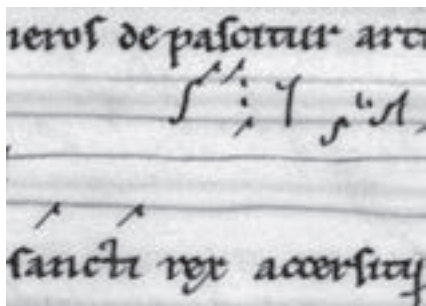 ieros de pascitur arti
sancti rex accersituꝝ